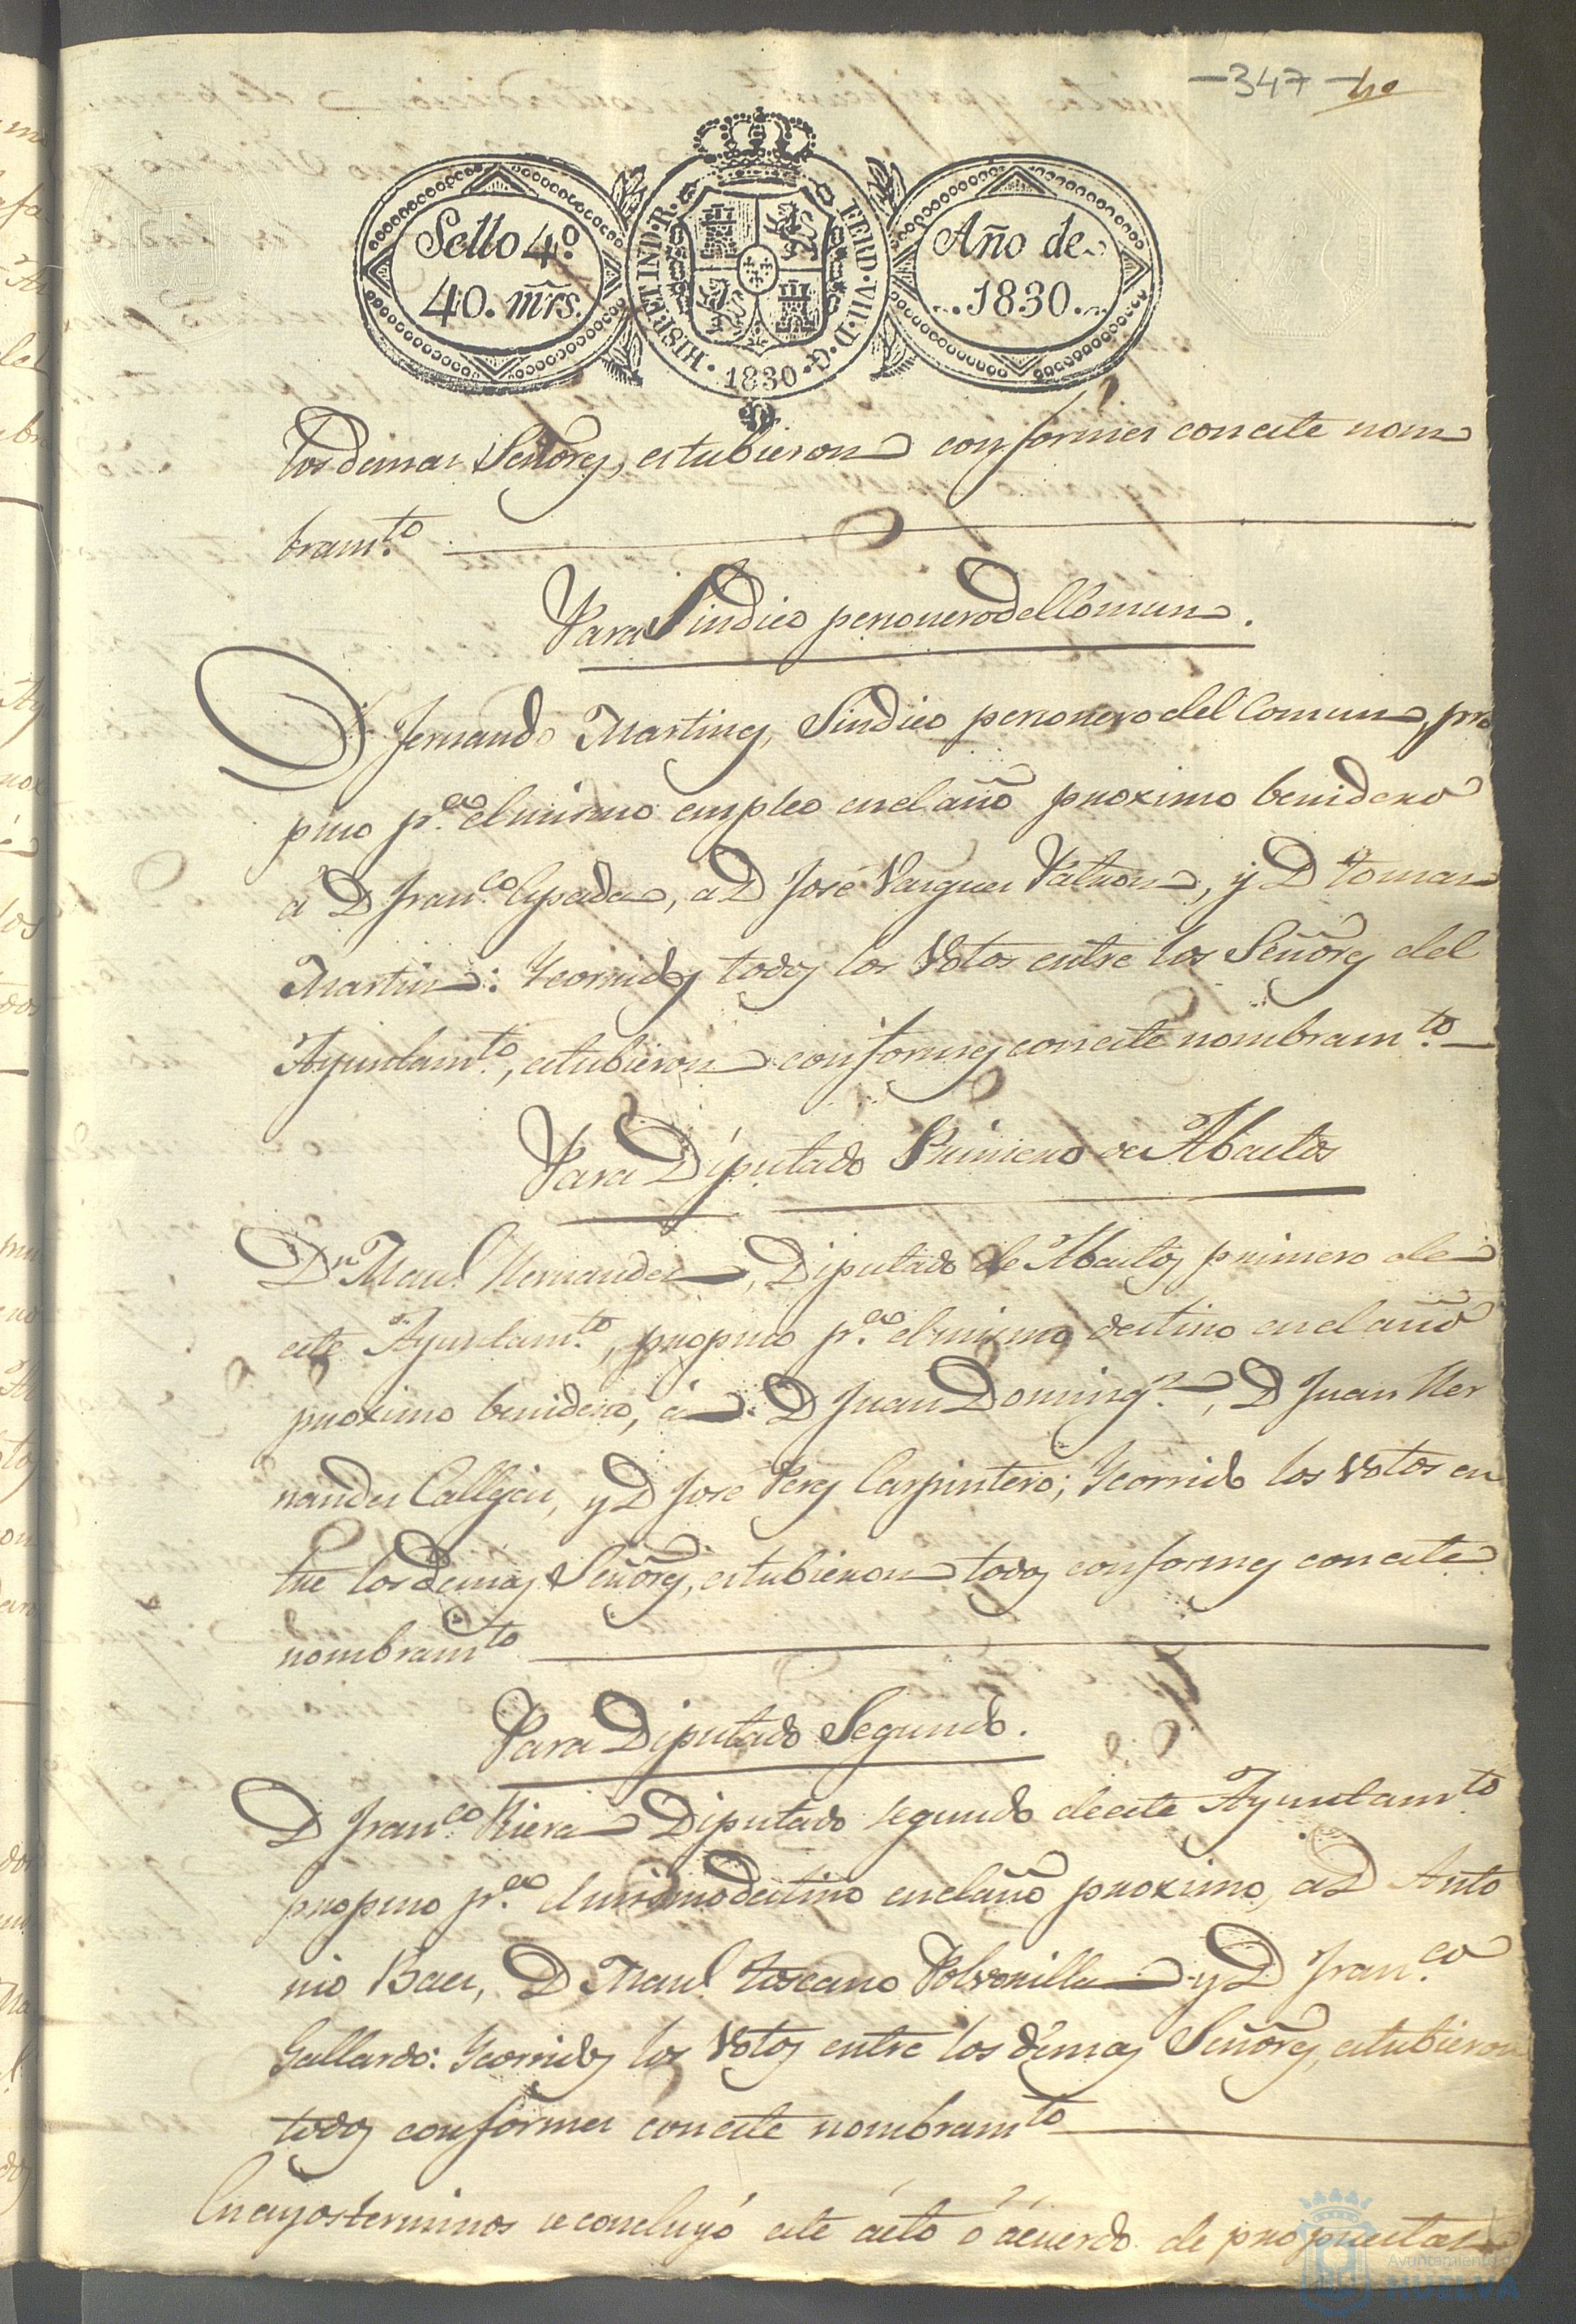 -347-
40
Sello 4.º
40. mr̃s.
HISP. ET IND. R. FERD. VII. D. G. 1830
Año de
1830.
los demas Señores, estubieron conformes con este nom
bram.to
Para Sindico personero del Comun.
D. Fernando Martinez, Sindico personero del Comun, pro
puso p.a el mismo empleo en el año proximo benidero
á D Fran.co Espada, a D José Vargues Patron, y D tomas
Martin: Y corridos todos los Votos entre los Señores del
Ayuntam.to, estubieron conformes con este nombram.to
Para Diputado Primero de Abastos
D.n Man.l Hernandes, Diputado de Abastos primero de
este Ayuntam.to, propuso p.a el mismo destino en el año
proximo benidero, á D Juan Doming.z, D Juan Her
nandes Calleja, y D José Perez Carpintero; Y corrido los Votos en
tre los demas Señores, estubieron todos conformes con este
nombram.to
Para Diputado Segundo.
D Fran.co Riera Diputado segundo de este Ayuntam.to
propuso p.a el mismo destino en el año proximo, a D Anto
nio Baes, D Man.l toscano Polvorilla y D Fran.co
Gallardo: Y corridos los Votos entre los demas Señores, estubieron
todos conformes con este nombram.to
En cuyos terminos se concluyó este acto ó acuerdo de propuestas
Ayuntamiento de
HUELVA